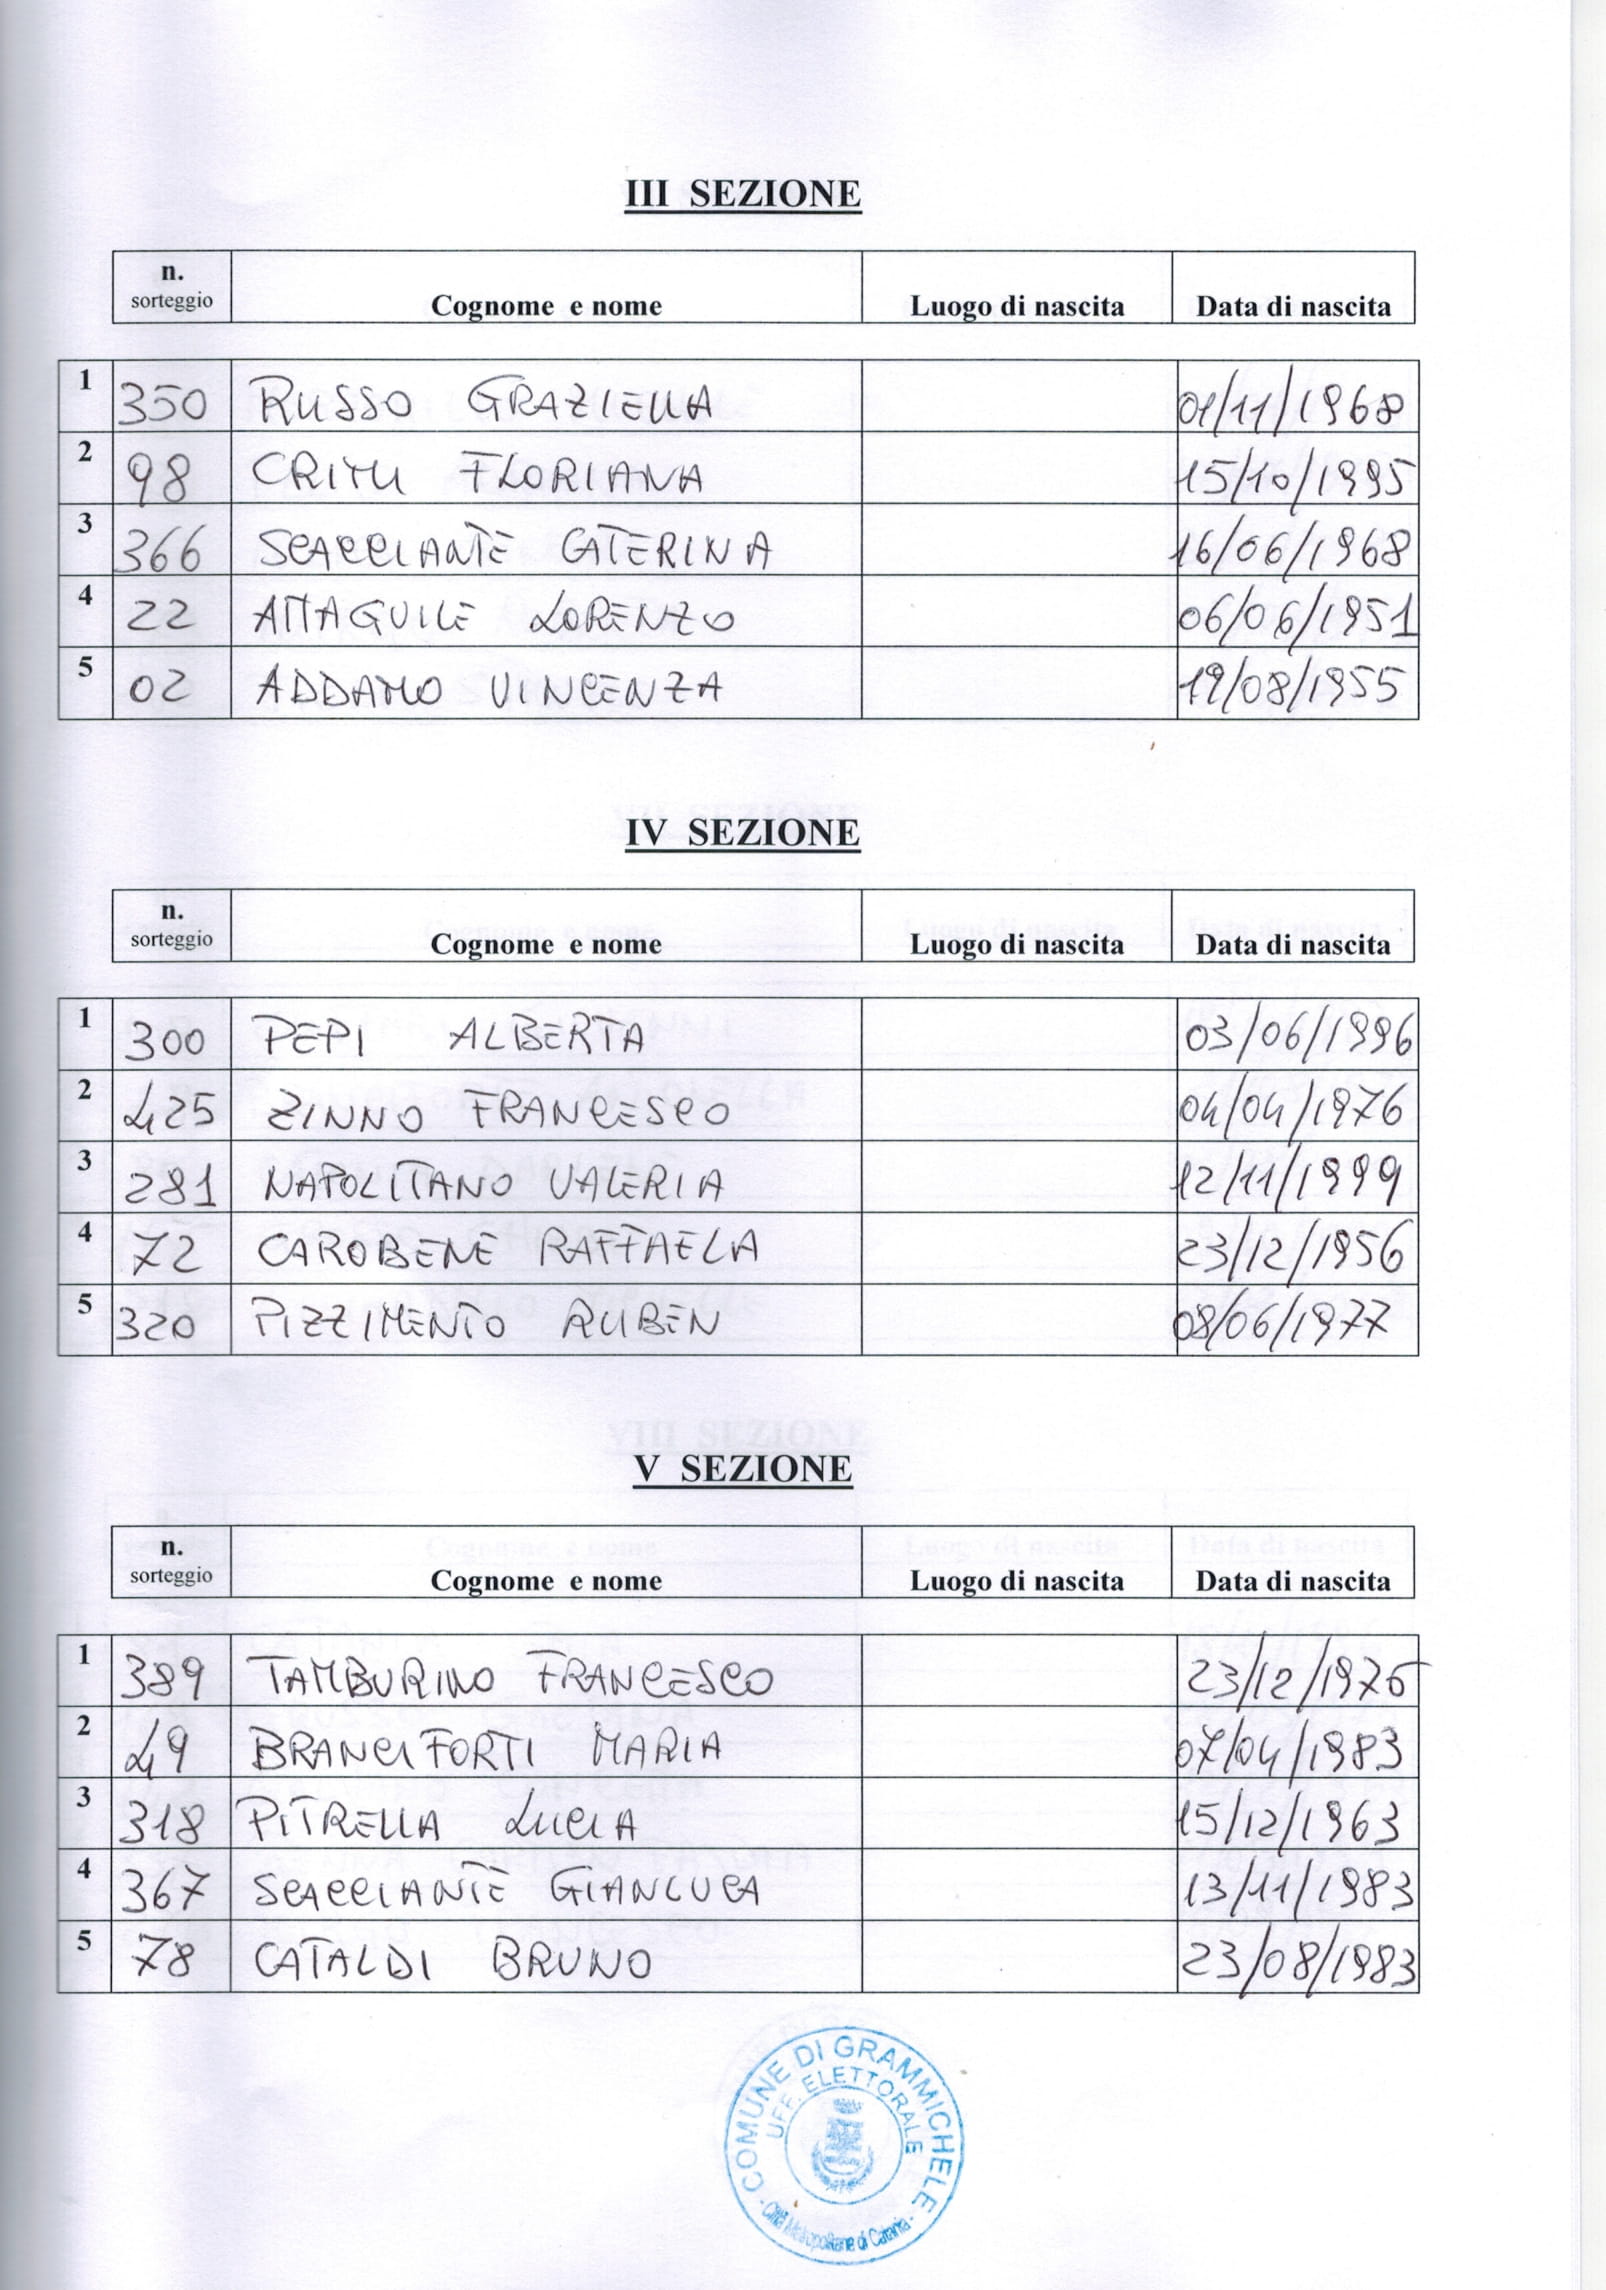 III SEZIONE
n. sorteggio Cognome e nome Luogo di nascita Data di nascita
1 350 RUSSO GRAZIELLA 01/11/1968
2 98 CRIMI FLORIANA 15/10/1995
3 366 SCACCIANTE CATERINA 16/06/1968
4 22 ATTAGUILE LORENZO 06/06/1951
5 02 ADDAMO VINCENZA 19/08/1955
IV SEZIONE
n. sorteggio Cognome e nome Luogo di nascita Data di nascita
1 300 PEPI ALBERTA 03/06/1996
2 425 ZINNO FRANCESCO 04/04/1976
3 281 NAPOLITANO VALERIA 12/11/1999
4 72 CAROBENE RAFFAELA 23/12/1956
5 320 PIZZIMENTO RUBEN 08/06/1977
V SEZIONE
n. sorteggio Cognome e nome Luogo di nascita Data di nascita
1 389 TAMBURINO FRANCESCO 23/12/1975
2 49 BRANCIFORTI MARIA 07/04/1983
3 318 PITRELLA LUCIA 15/12/1963
4 367 SCACCIANTE GIANLUCA 13/11/1983
5 78 CATALDI BRUNO 23/08/1983
COMUNE DI GRAMMICHELE
UFF. ELETTORALE
- Città Metropolitana di Catania -